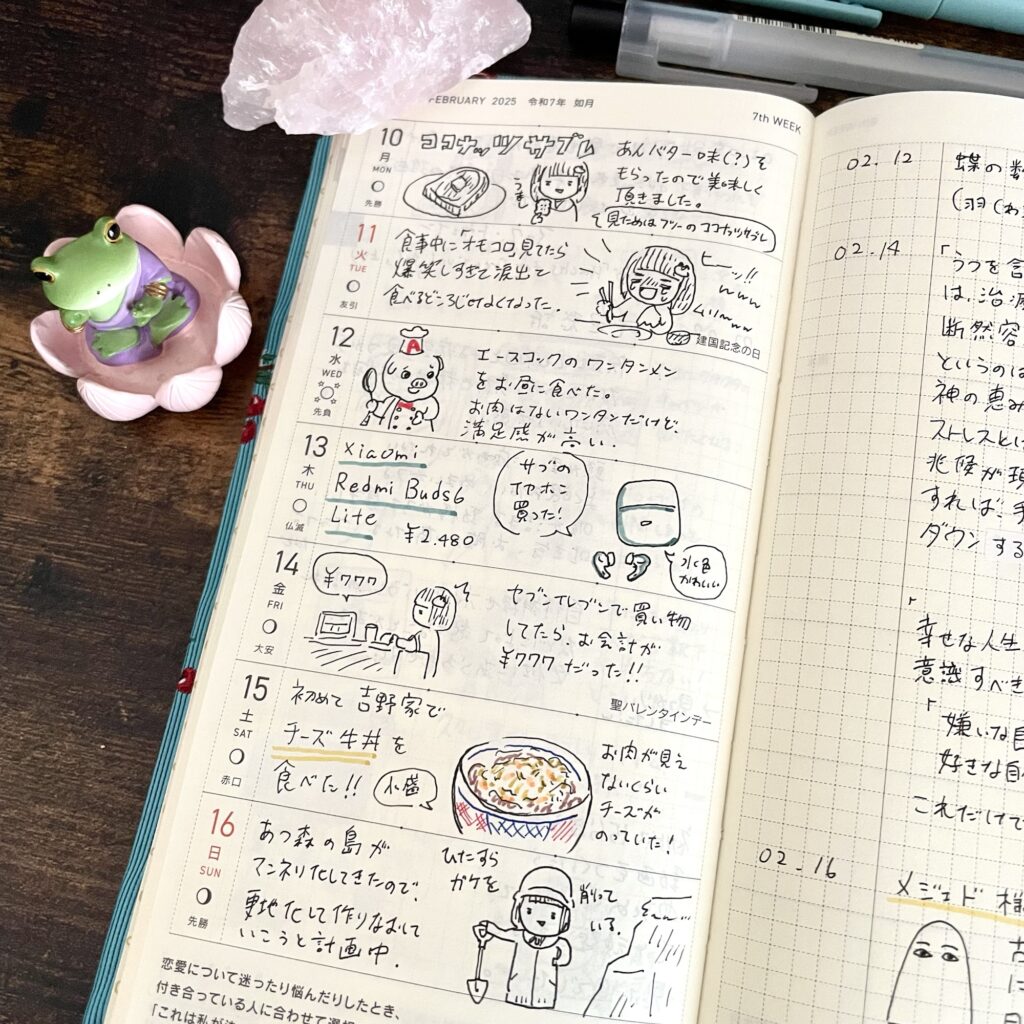 FEBRUARY 2025 令和7年 如月
7th WEEK
10
月
MON
先勝
ココナッツサブレ
あんバター味(?)を
もらったので美味しく
頂きました。
見ためはフツーのココナッツサブレ
うまし
11
火
TUE
友引
食事中に「オモコロ」見てたら
爆笑しすぎて涙出て
食べるどころじゃなくなった。
ヒーッ!!
www
ムリwww
建国記念の日
12
水
WED
先負
A
エースコックのワンタンメン
をお昼に食べた。
お肉はないワンタンだけど、
満足感が高い.
13
木
THU
仏滅
Xiaomi
Redmi Buds6
Lite
¥2.480
サブの
イヤホン
買った!
水色
かわいい
14
金
FRI
大安
¥777
セブンイレブンで買い物
してたら、お会計が
¥777だった!!
聖バレンタインデー
15
土
SAT
赤口
初めて吉野家で
チーズ牛丼を
食べた!!
小盛
お肉が見え
ないくらい
チーズが
のっていた!
16
日
SUN
先勝
あつ森の島が
マンネリ化してきたので、
更地化して作りなおして
いこうと計画中.
ひたすら
ガケを
削って
いる.
恋愛について迷ったり悩んだりしたとき、
付き合っている人に合わせて
「これは私が
02.12
蝶の数
02.14
「うつを
は、治
断然容
というのは
神の恵み
ストレスと
兆候が現
すれば、
ダウンする
「
幸せな人生
意識すべき
「嫌いな
好きな
これだけで
02.16
メジェド様
古
に